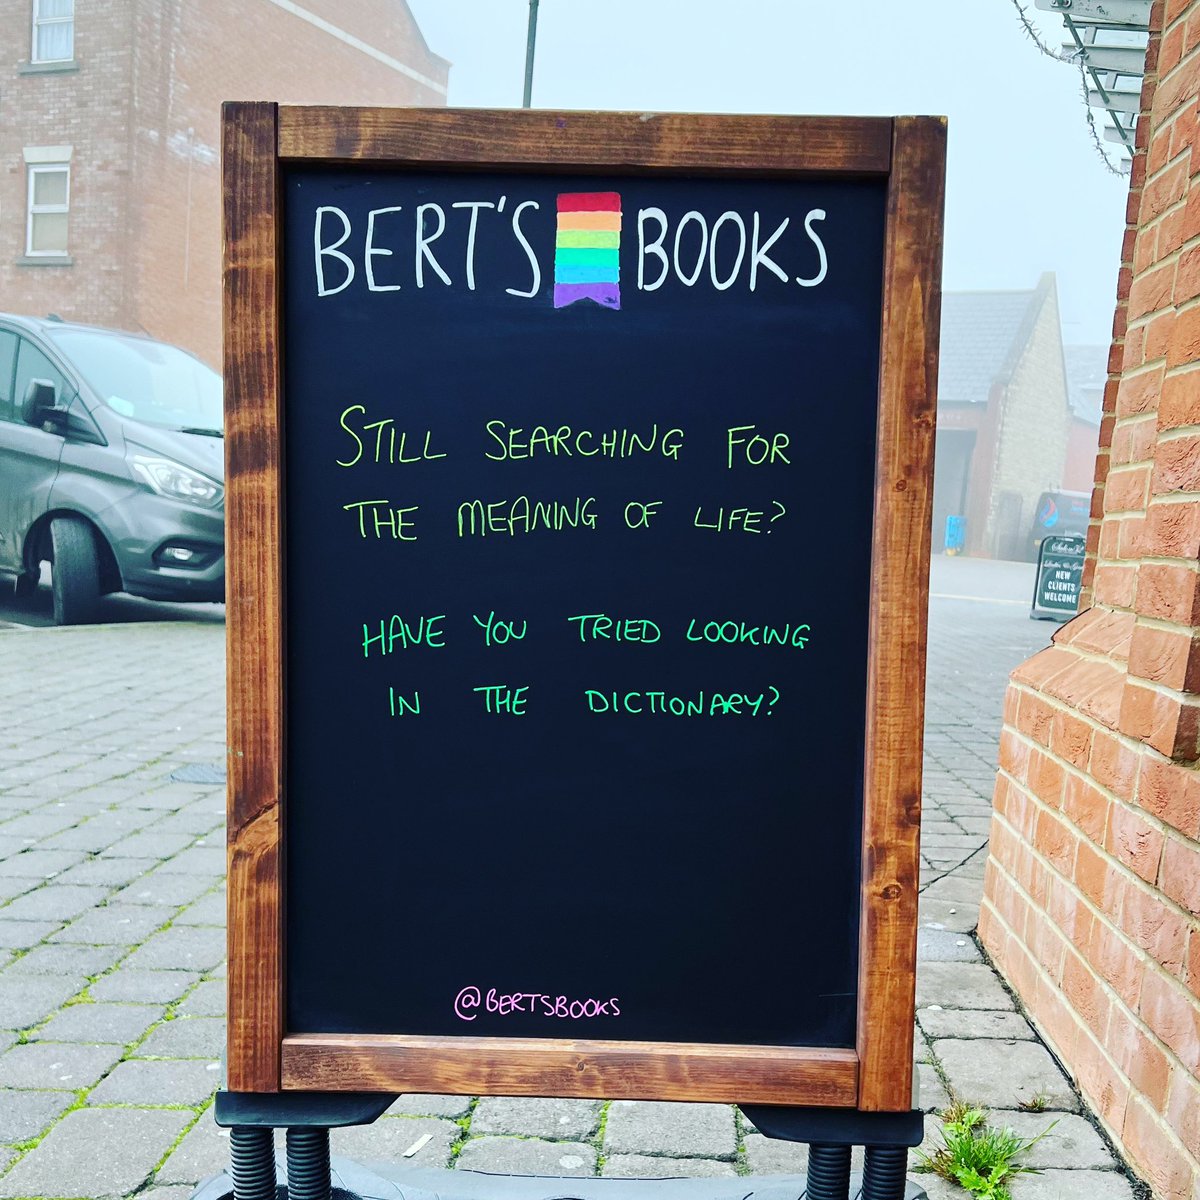 BERT'S BOOKS
STILL SEARCHING FOR
THE MEANING OF LIFE?
HAVE YOU TRIED LOOKING
IN THE DICTIONARY?
@BERTSBOOKS
NEW
CLIENTS
WELCOME